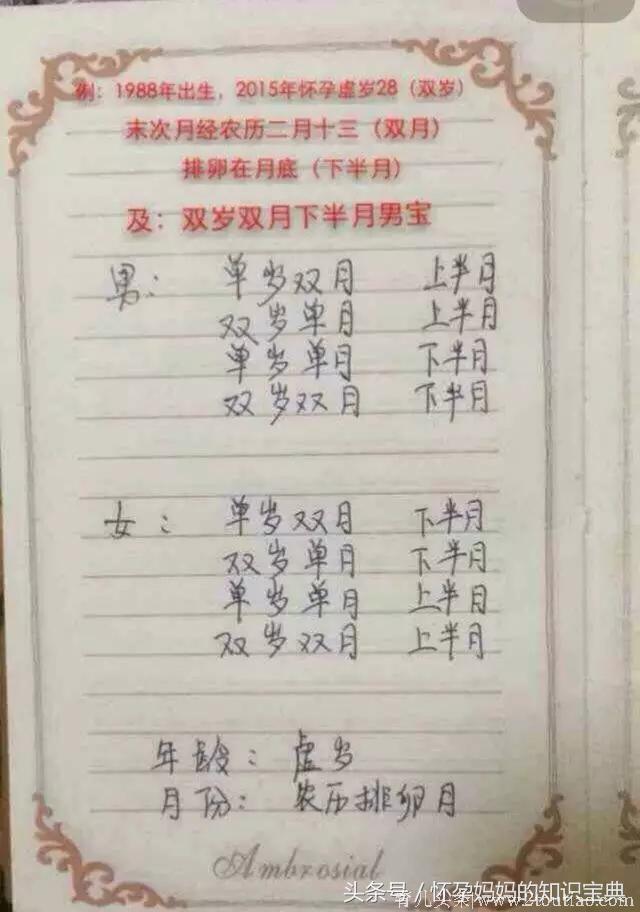 例：1988年出生，2015年怀孕虚岁28（双岁）
末次月经农历二月十三（双月）
排卵在月底（下半月）
及：双岁双月下半月男宝
男： 单岁双月 上半月
双岁单月 上半月
单岁单月 下半月
双岁双月 下半月
女： 单岁双月 下半月
双岁单月 下半月
单岁单月 上半月
双岁双月 上半月
年龄： 虚岁
月份： 农历排卵月
Ambrosial
头条号／怀孕妈妈的知识宝典
育儿头条 www.2toutiao.com